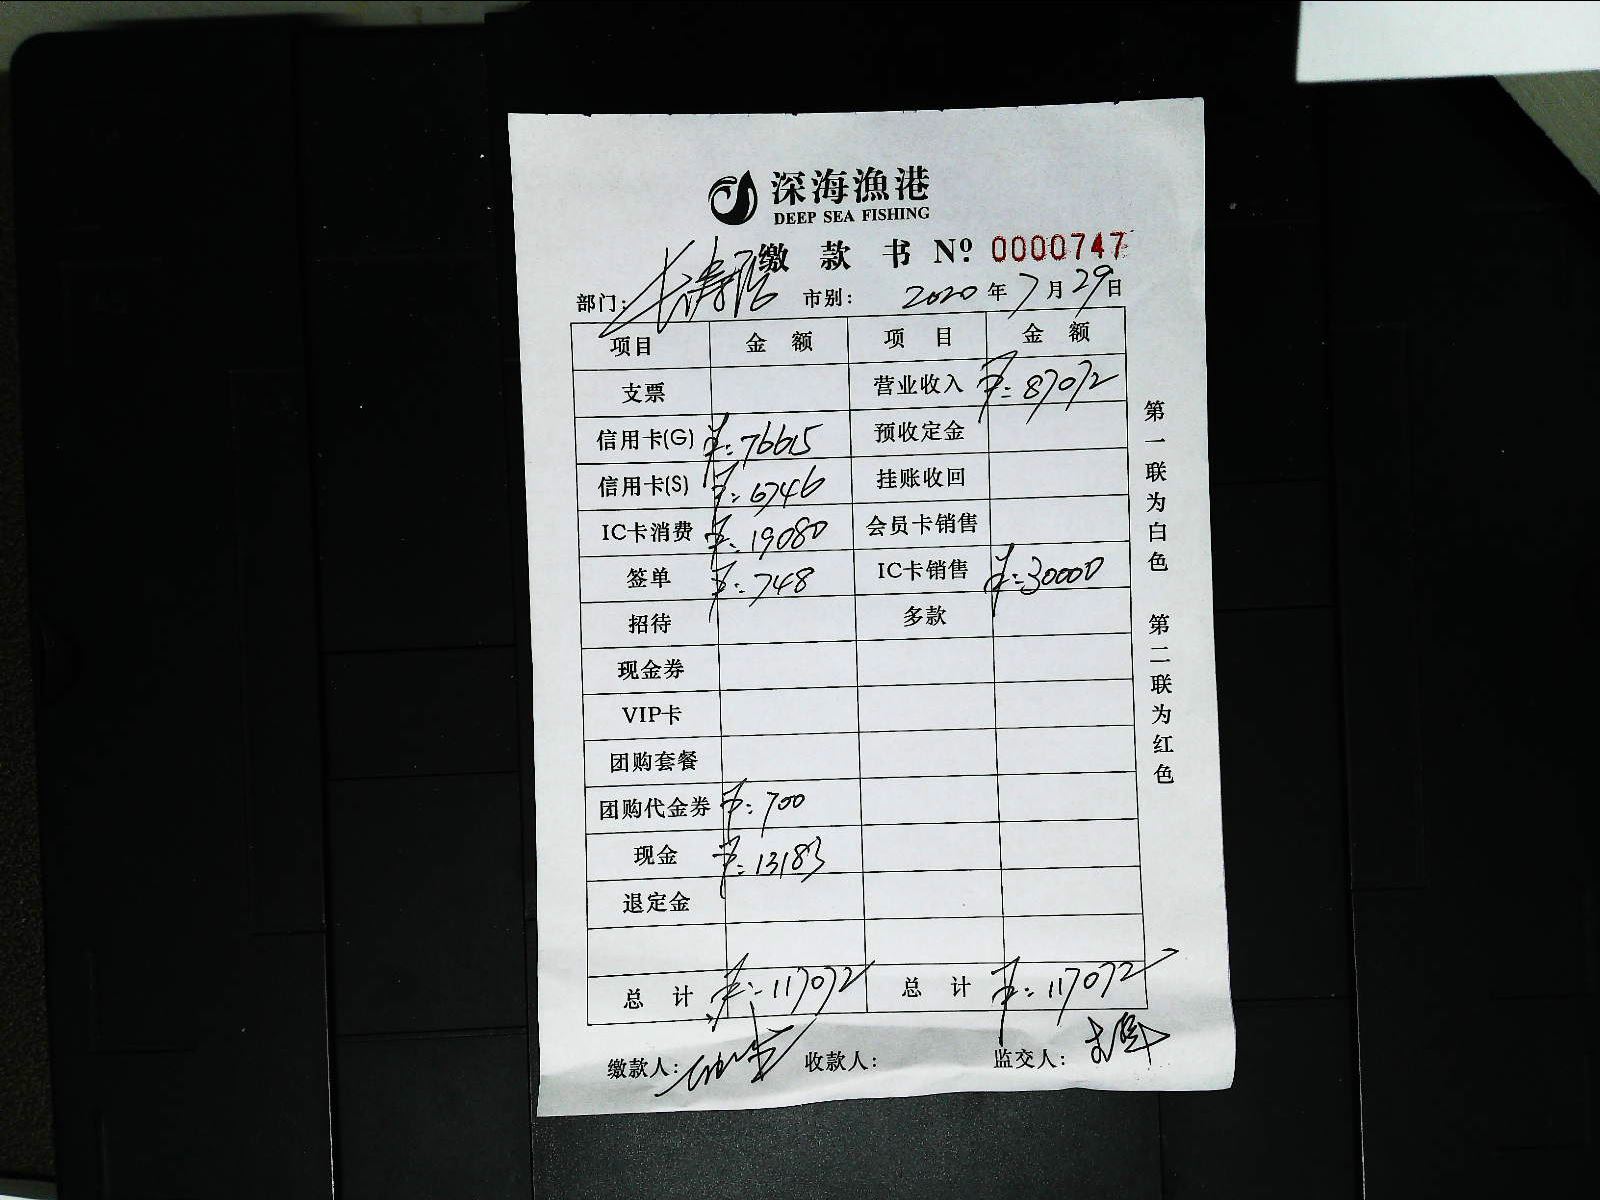 深海漁港
DEEP SEA FISHING
缴 款 书 Nº 0000747
部门： 市别： 2020 年 7 月 29 日
项目 金 额 项 目 金 额
支票 营业收入 ¥：87072
信用卡(G) ¥：76615 预收定金
信用卡(S) ¥：6746 挂账收回
IC卡消费 ¥：19080 会员卡销售
签单 ¥：748 IC卡销售 ¥：30000
招待 多款
现金券
VIP卡
团购套餐
团购代金券 ¥：700
现金 ¥：13183
退定金
总 计 ¥：117072 总 计 ¥：117072
缴款人： 收款人： 监交人：
第一联为白色 第二联为红色